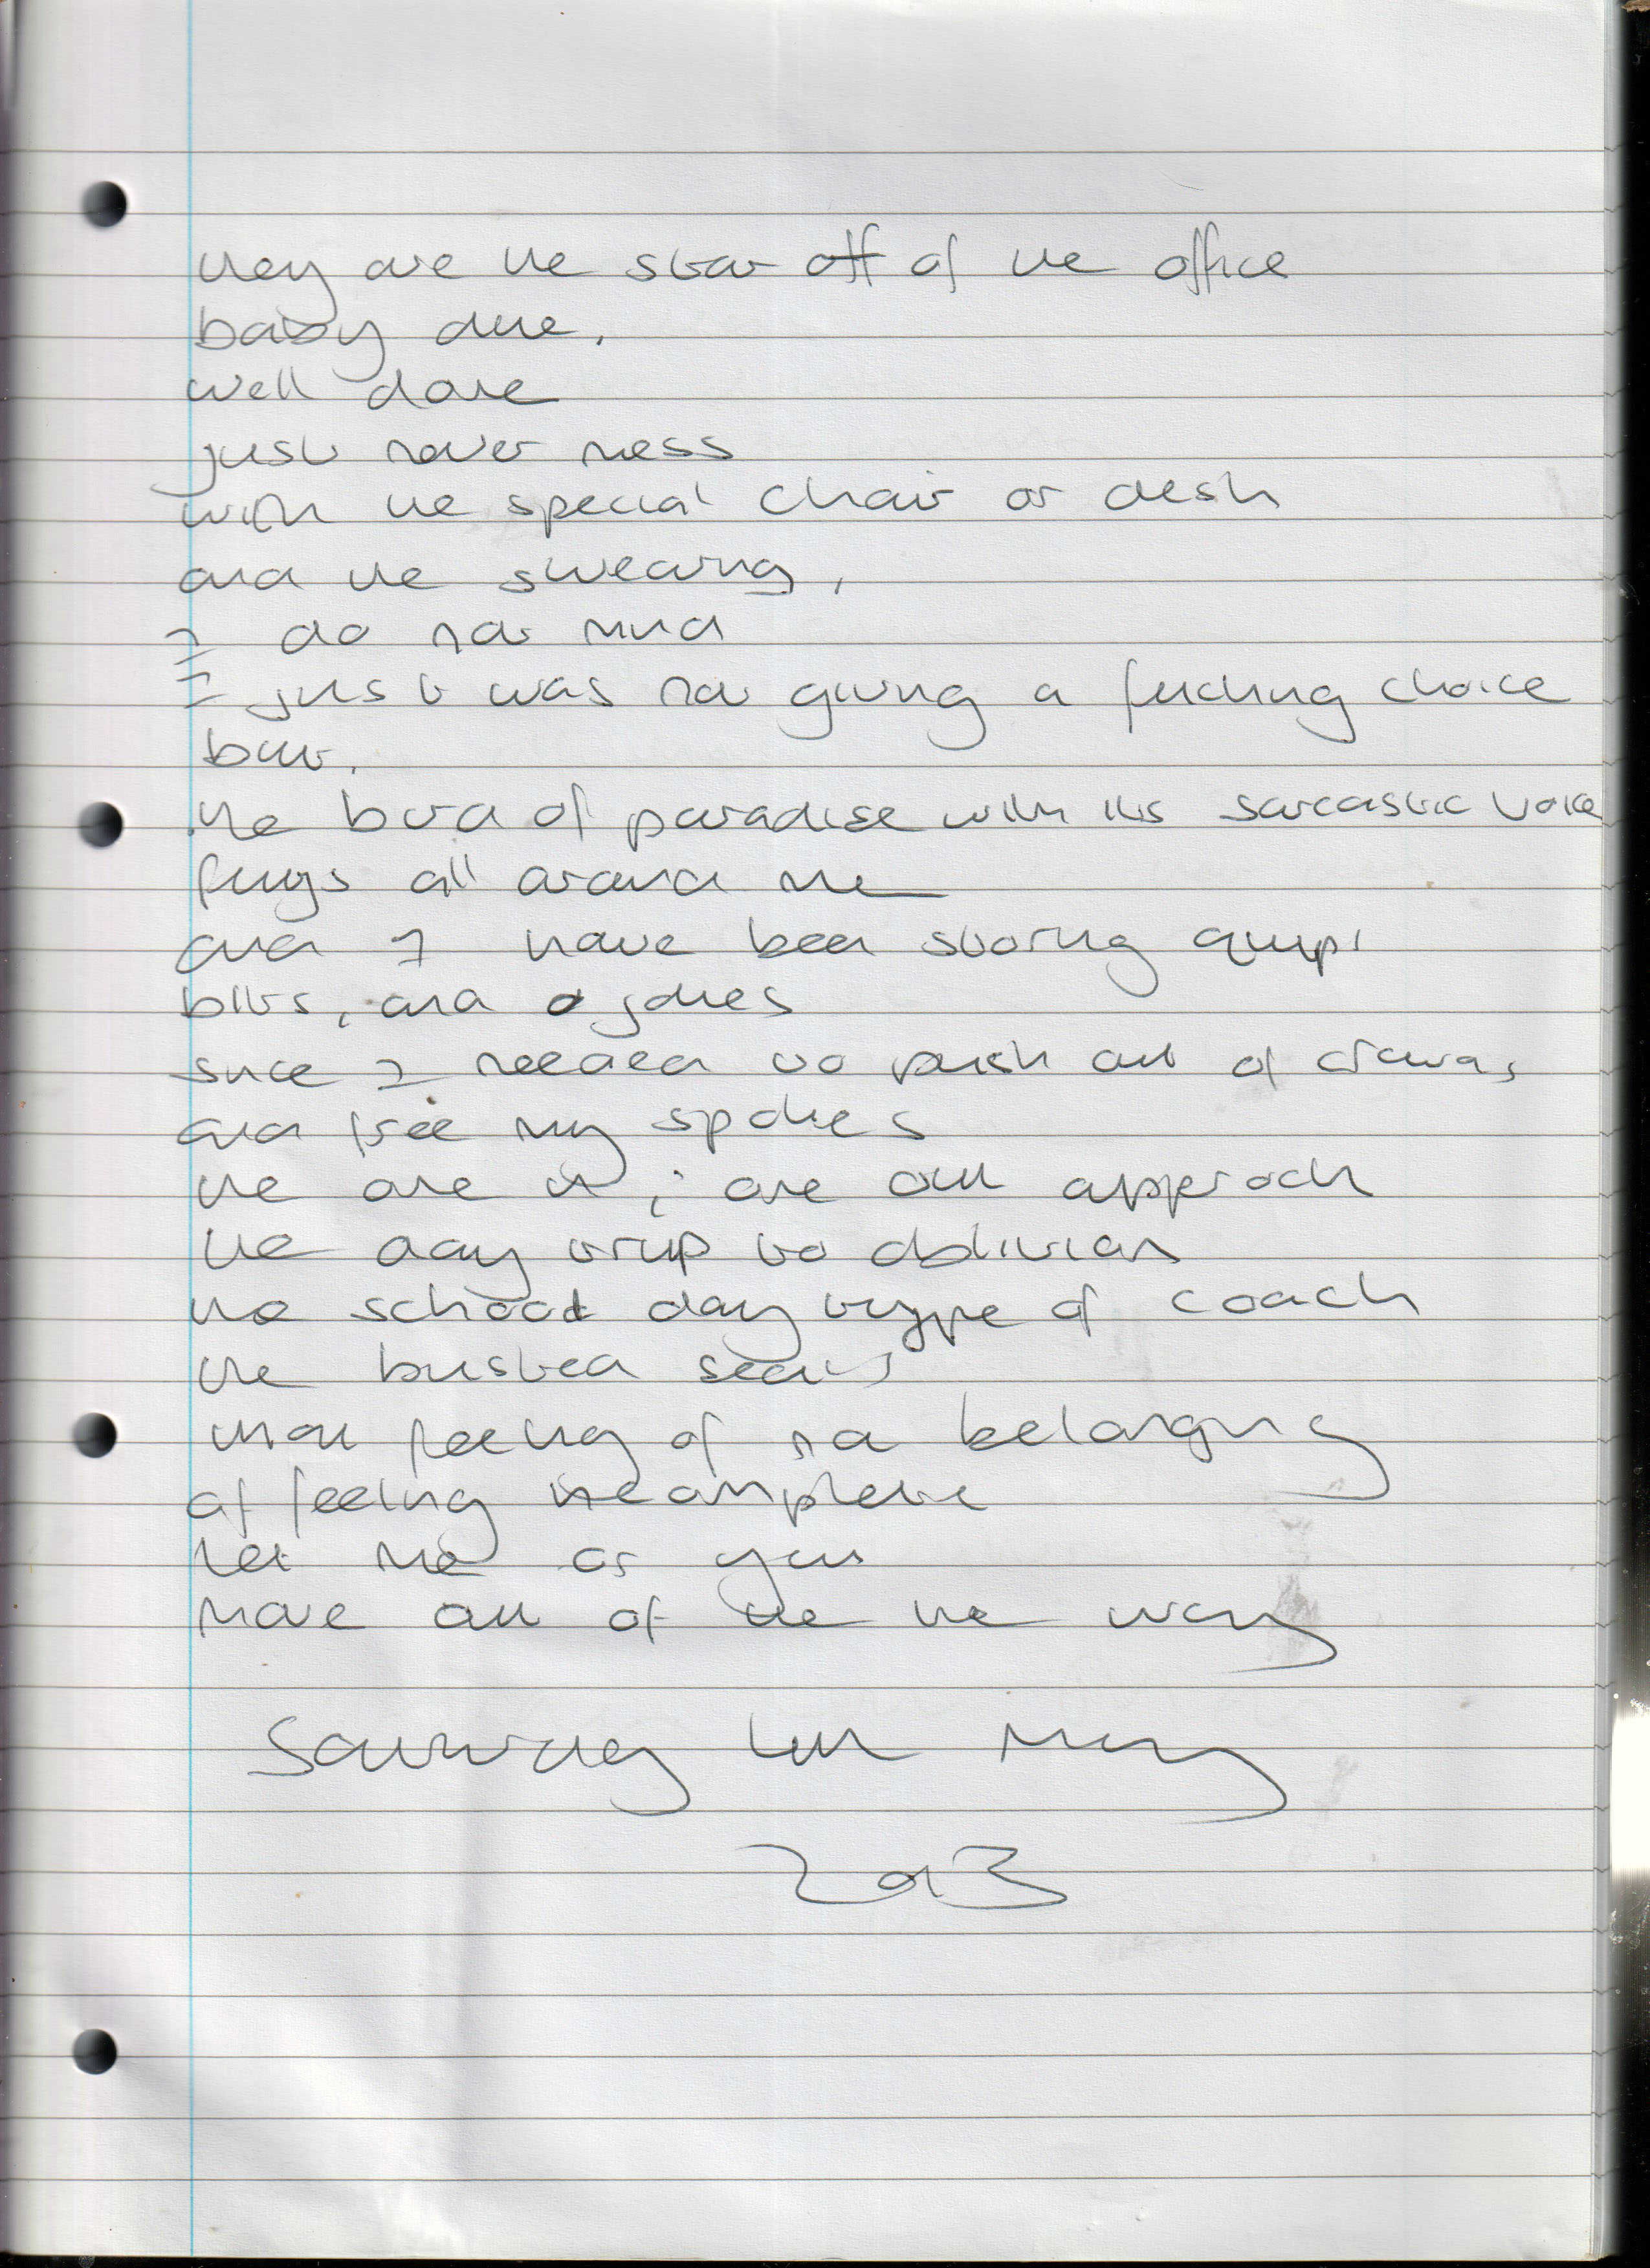 they are the star off of the office
baby dule,
well done
just never mess
with the special chair or desk
and the swearing,
I do not mind
I just was not giving a fucking choice
but,
the bird of paradise with its sarcastic voice
flings all around me
and I have been storing quips
bits, and jokes
since I needed to push out of crowd,
and free my spokes
the one in, one out approach
the day trip to oblivion
the school day type of coach
the busted seats
that feeling of not belonging
of feeling incomplete
let me or you
move out of the the way
Saturday 4th May
2013